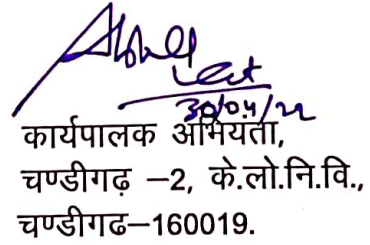 30/04/22
कार्यपालक अभियंता,
चण्डीगढ़ –2, के.लो.नि.वि.,
चण्डीगढ–160019.